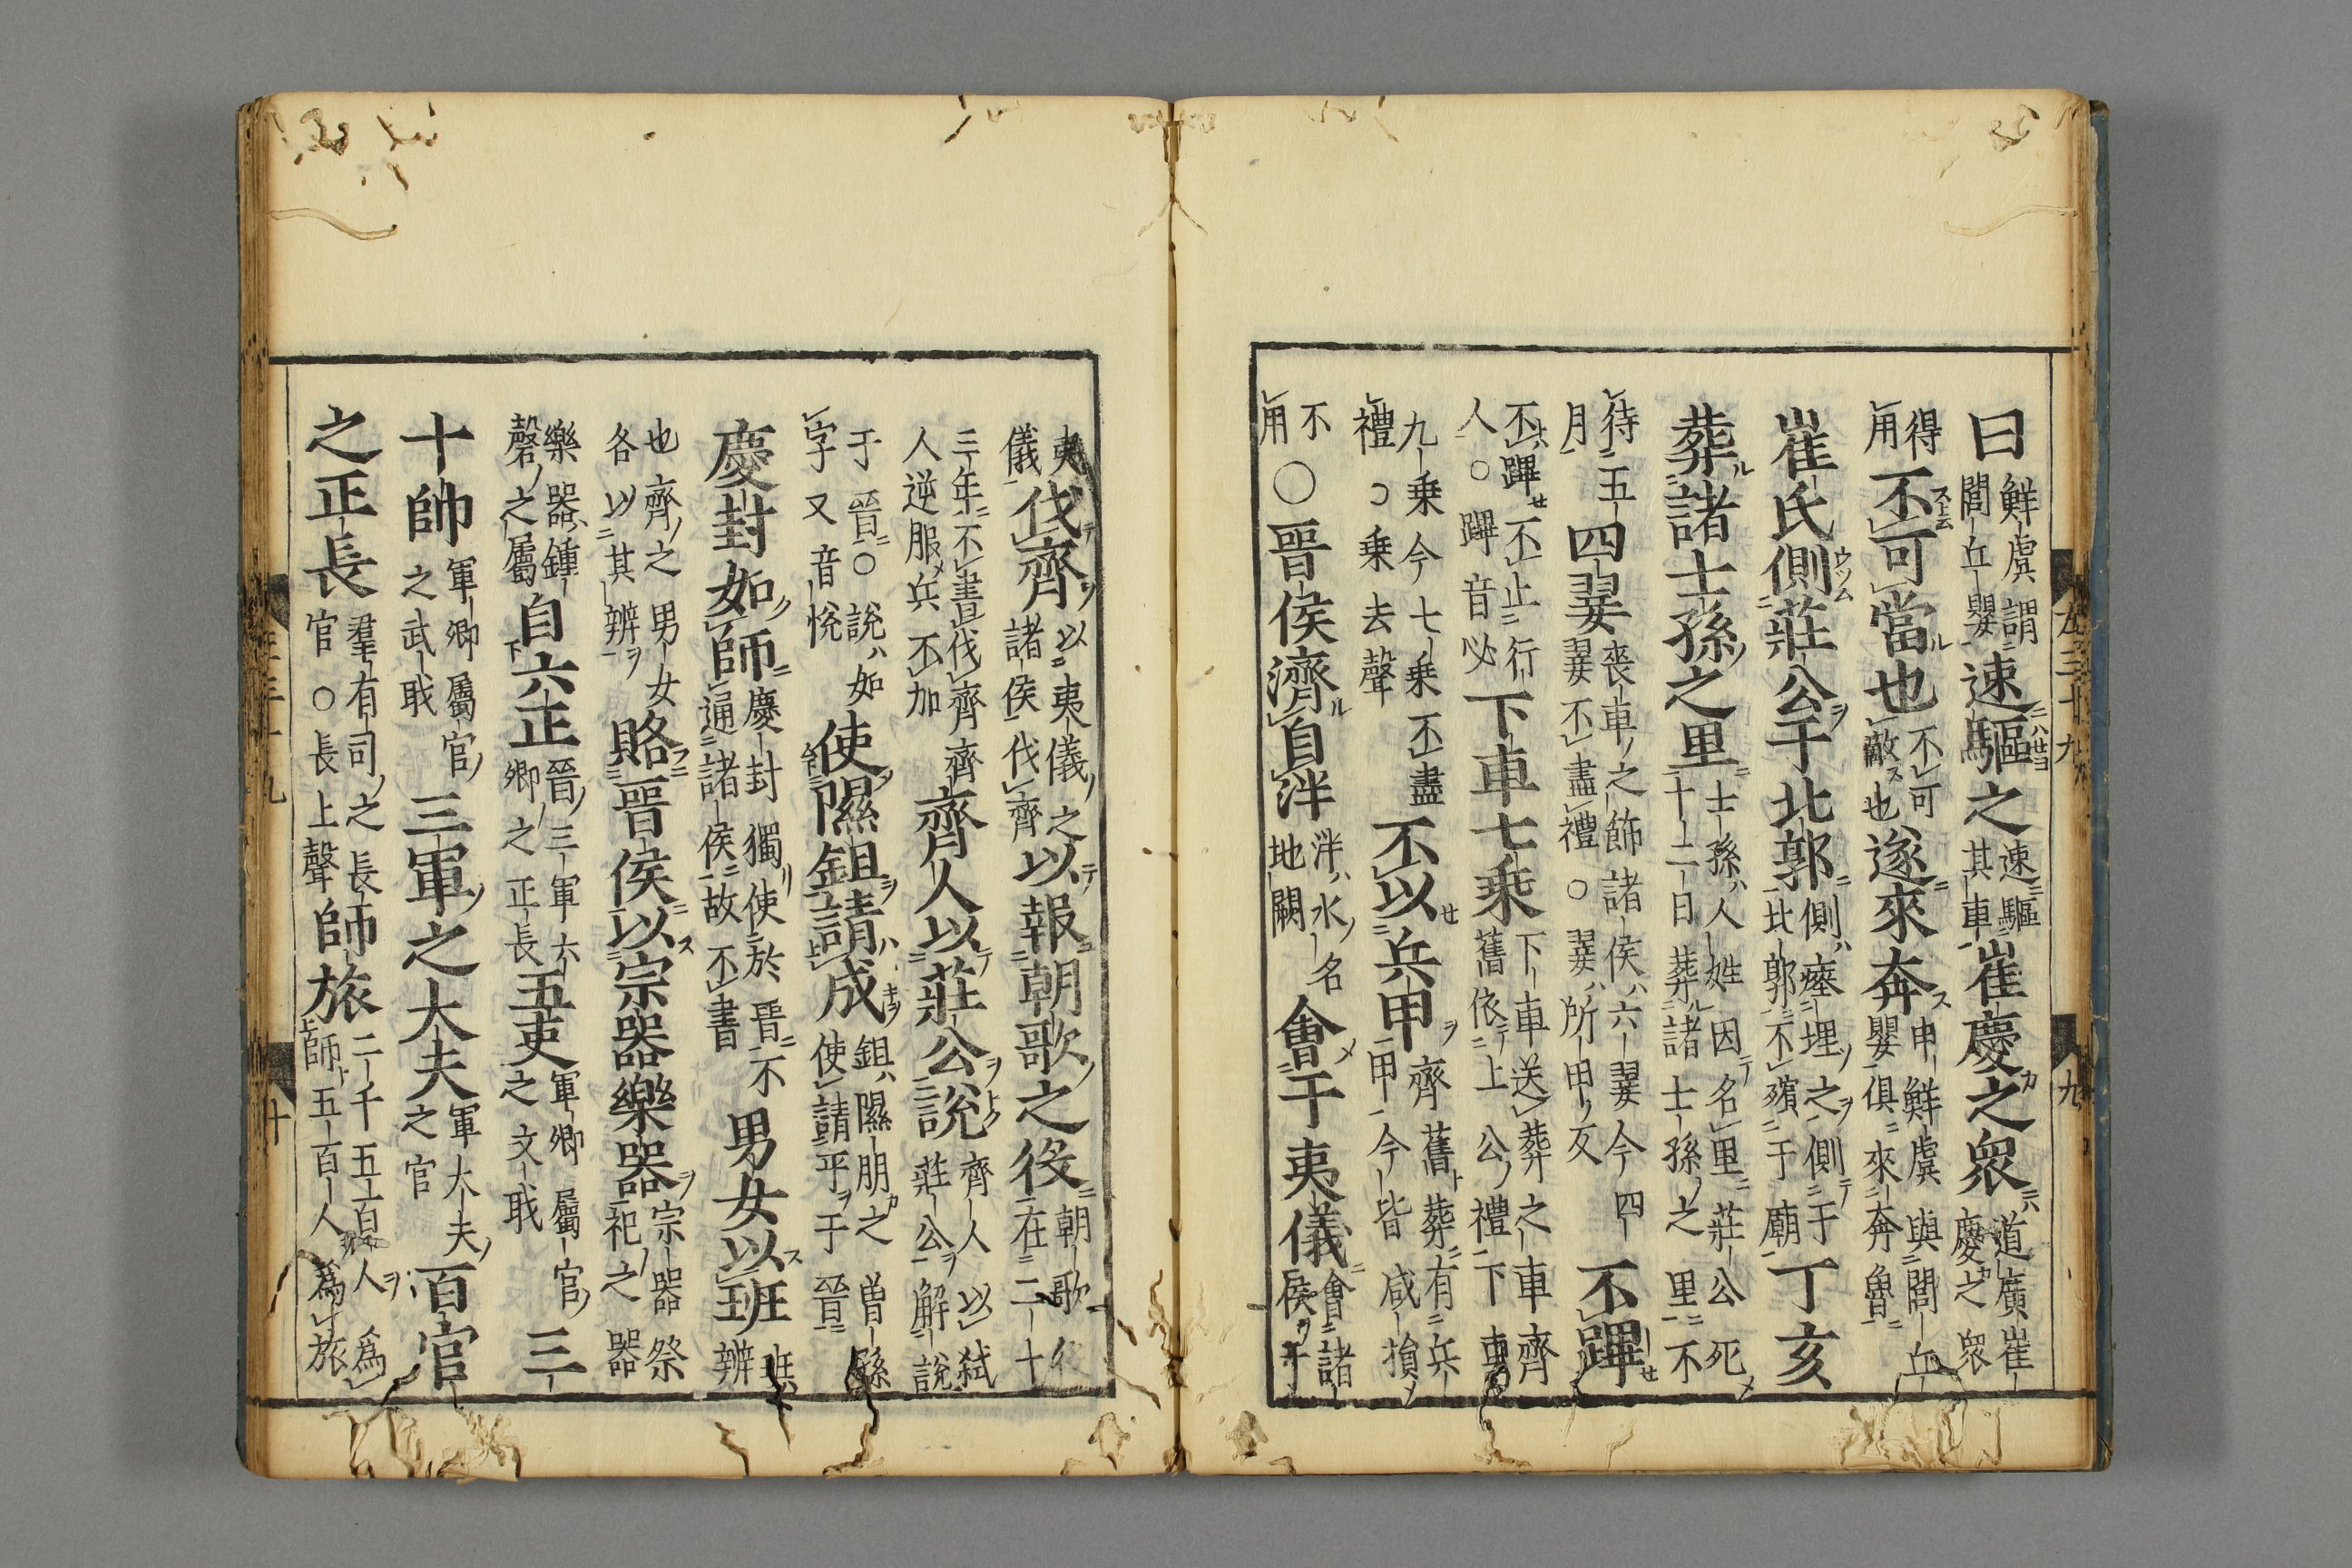 左三十九 九
曰鮮虞謂閭丘嬰速驅之速驅其車崔慶之衆道廣崔慶之衆
得用不可當也不可敵也遂來奔申鮮虞與閭丘嬰俱來奔魯
崔氏側莊公于北郭側瘞埋之側于北郭不殯于廟丁亥
葬諸士孫之里士孫人姓因名里莊公死十二日葬諸士孫之里不
待五月四翣喪車之飾諸侯六翣今四翣不盡禮○翣所甲反不蹕
不蹕不止行人○蹕音必下車七乘下車送葬之車齊舊依上公禮下車
九乘今七乘不盡禮○乘去聲不以兵甲齊舊葬有兵甲今皆咸損
不用○晉侯濟自泮泮水名地闕會于夷儀會諸侯于
夷儀伐齊以夷儀之諸侯伐齊以報朝歌之役朝歌役在二十
三年不書伐齊齊人逆服兵不加齊人以莊公說齊人以弑莊公解說
于晉○說如字又音悅使隰鉏請成鉏隰朋之曾孫使請平于晉
慶封如師慶封獨使於晉不遍諸侯故不書男女以班班辨
也齊之男女各以其辨賂晉侯以宗器樂器宗器祭祀之器
樂器鍾磬之屬自六正晉三軍六卿之正長五吏軍卿屬官之文職三
十帥軍卿屬官之武職三軍之大夫軍大夫之官百官
之正長羣有司之長官○長上聲師旅二千五百人爲師五百人爲旅
十